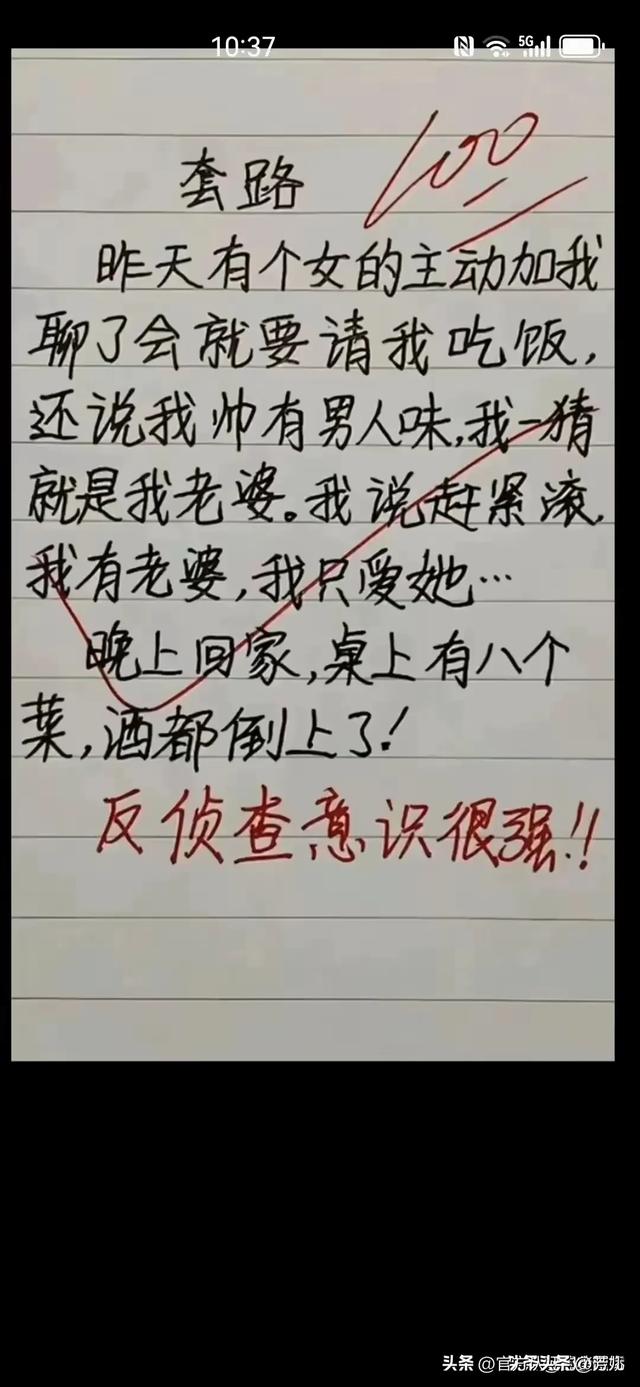 10:37
5G
100
套路
昨天有个女的主动加我
聊了会就要请我吃饭,
还说我帅有男人味,我一猜
就是我老婆。我说赶紧滚,
我有老婆,我只爱她…
晚上回家,桌上有八个
菜,酒都倒上了!
反侦查意识很强!!
头条